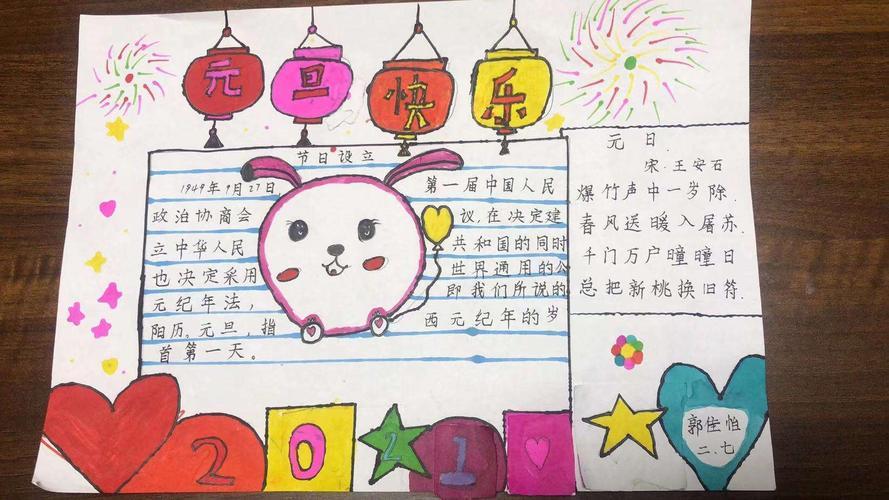 元旦快乐
节日设立
1949年9月27日, 第一届中国人民
政治协商会 议,在决定建
立中华人民 共和国的同时
也决定采用 世界通用的公
元纪年法, 即我们所说的
阳历。元旦,指 西元纪年的岁
首第一天。
元日.
宋.王安石
爆竹声中一岁除
春风送暖入屠苏.
千门万户曈曈日
总把新桃换旧符.
2021
郭佳怡
二.七